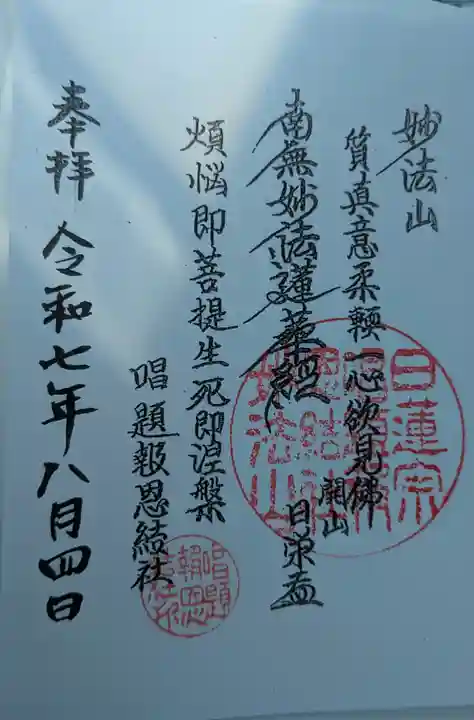 妙法山
質真意柔輭一心欲見佛
南無妙法蓮華經
開山
日栄
煩悩即菩提生死即涅槃
唱題報恩結社
奉拝 令和七年八月四日
日蓮宗
唱題
報恩
結社